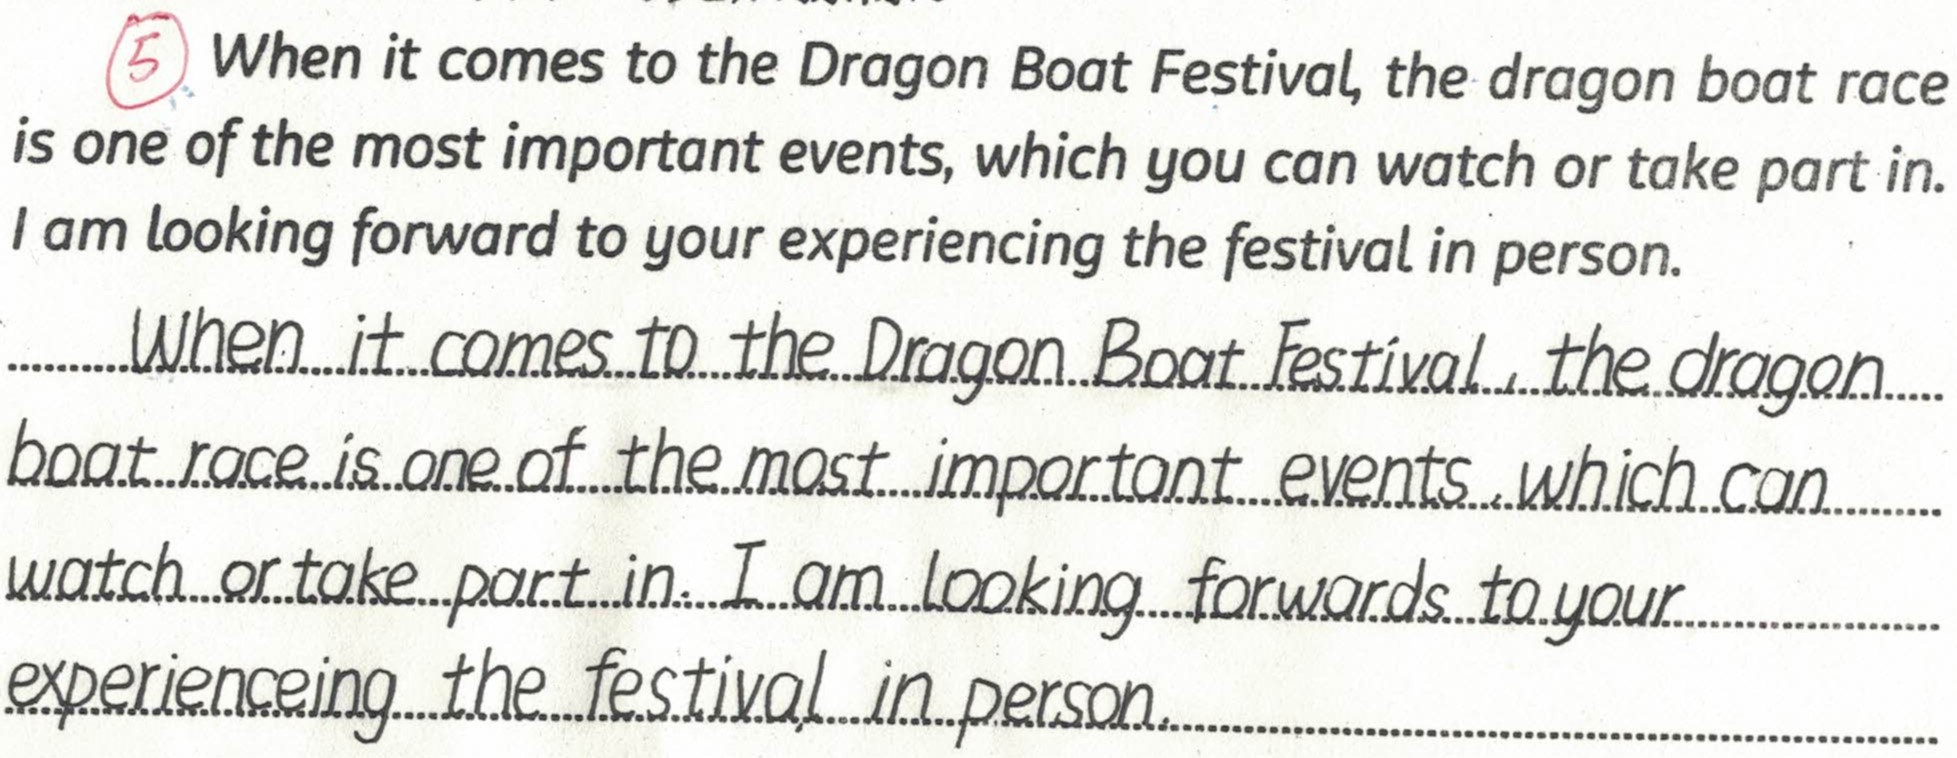 ⑤ When it comes to the Dragon Boat Festival, the dragon boat race
is one of the most important events, which you can watch or take part in.
I am looking forward to your experiencing the festival in person.
When it comes to the Dragon Boat Festival, the dragon
boat race is one of the most important events, which can
watch or take part in. I am looking forwards to your
experienceing the festival in person.